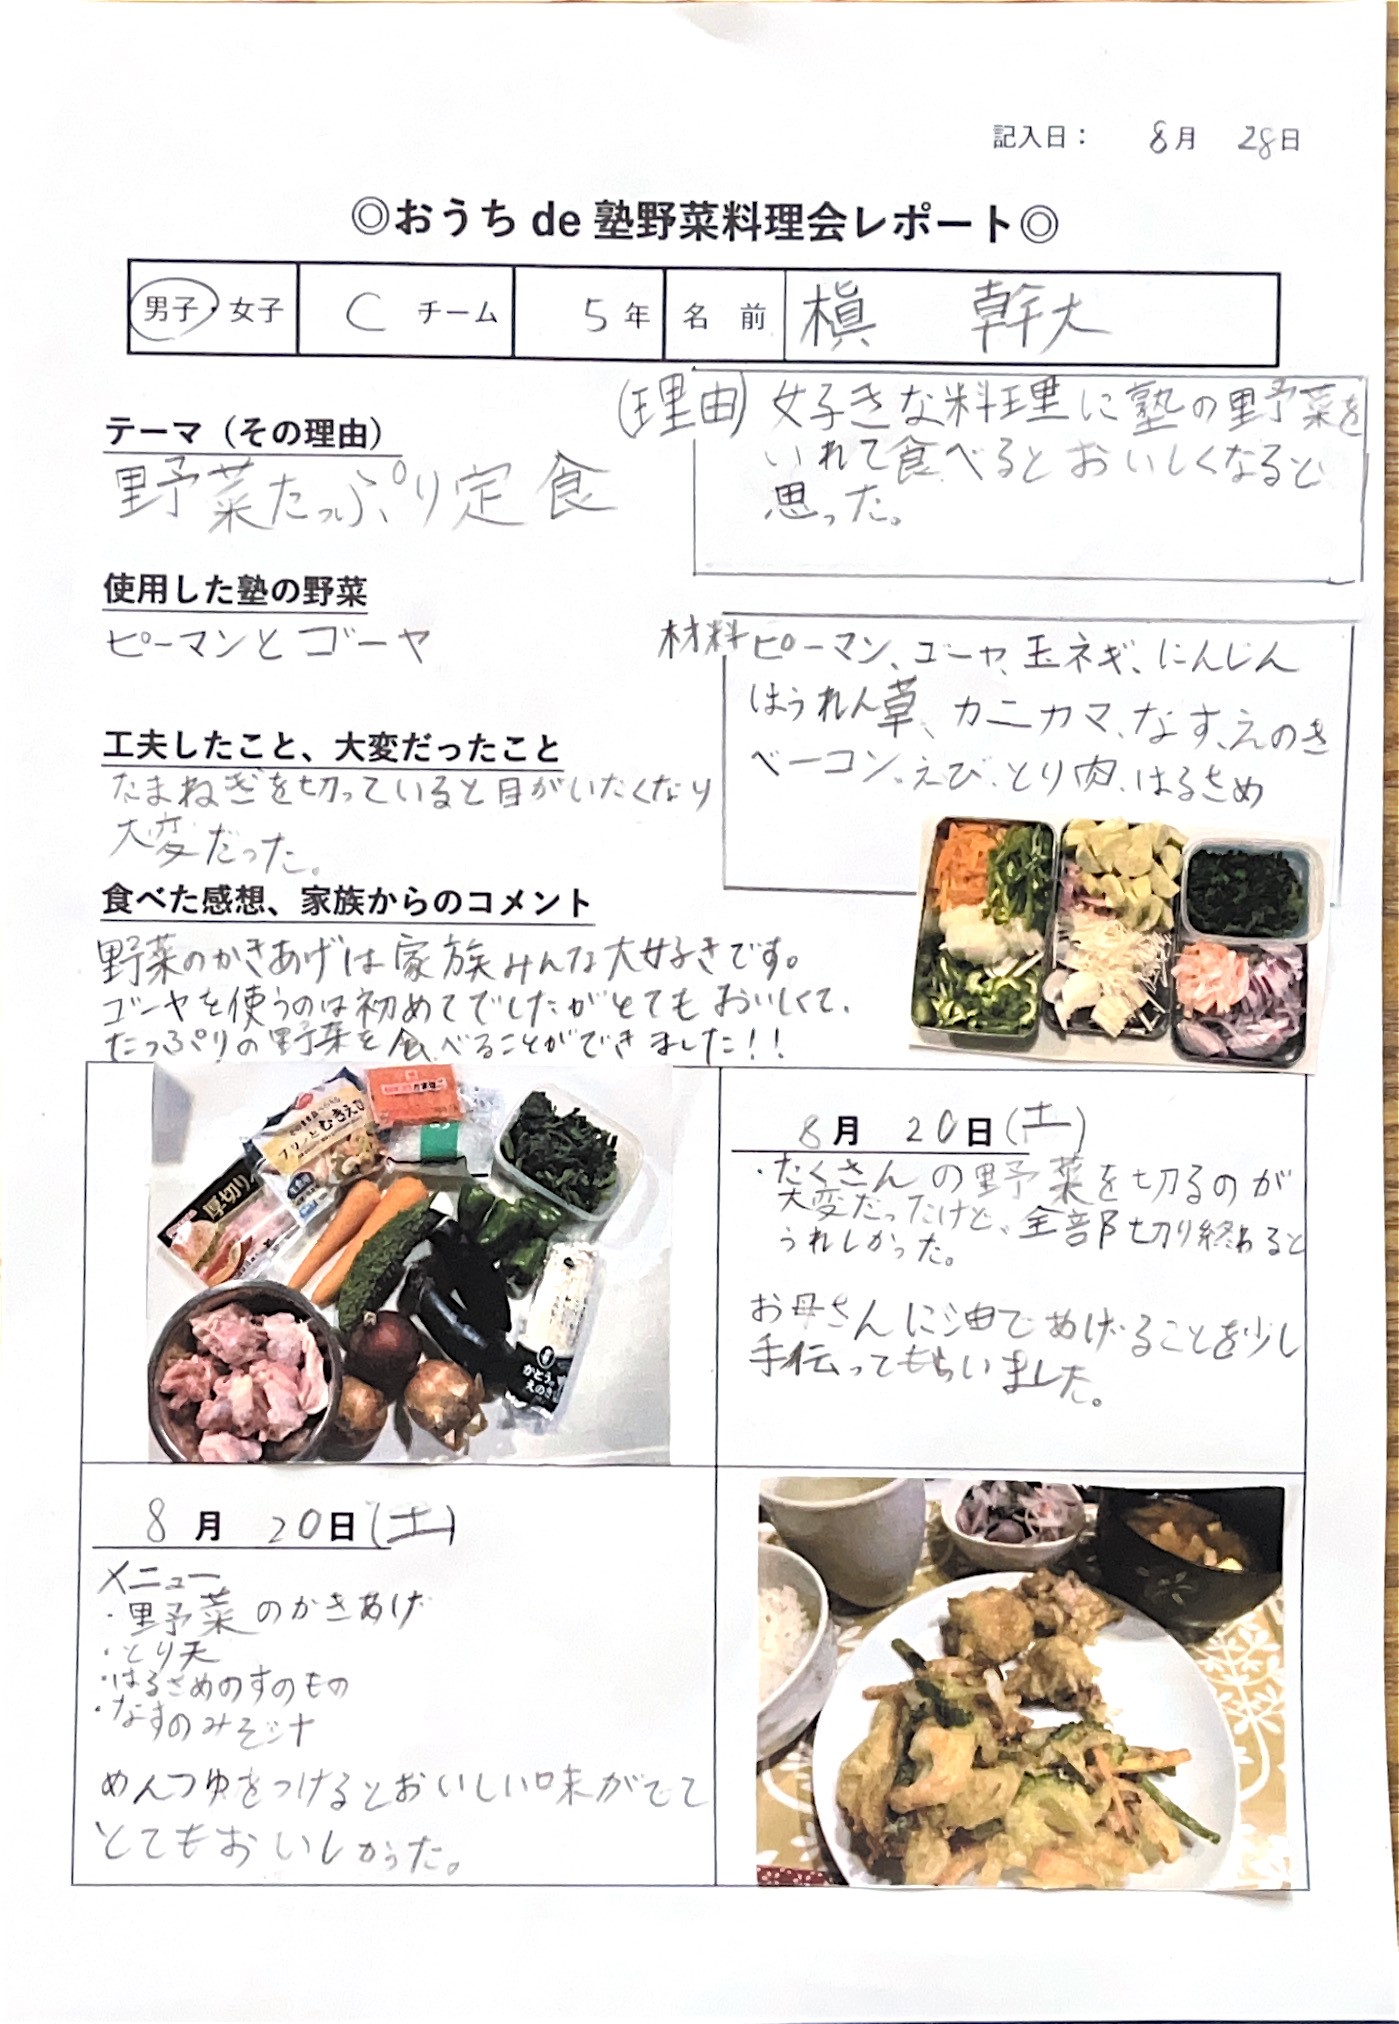 記入日： 8月 28日
◎おうち de 塾野菜料理会レポート◎
男子・女子 C チーム 5年 名前 槇 幹大
テーマ（その理由）
野菜たっぷり定食
(理由) 好きな料理に塾の野菜を
いれて食べるとおいしくなると
思った。
使用した塾の野菜
ピーマンとゴーヤ
材料 ピーマン、ゴーヤ、玉ネギ、にんじん
ほうれん草、カニカマ、なす、えのき
ベーコン、えび、とり肉、はるさめ
工夫したこと、大変だったこと
たまねぎを切っていると目がいたくなり
大変だった。
食べた感想、家族からのコメント
野菜のかきあげは家族みんな大好きです。
ゴーヤを使うのは初めてでしたがとてもおいしくて、
たっぷりの野菜を食べることができました！！
プリッとむきえび
厚切り
かとう。
えのき
8月 20日(土)
・たくさんの野菜を切るのが
大変だったけど、全部切り終わると
うれしかった。
お母さんに油であげることを少し
手伝ってもらいました。
8月 20日(土)
メニュー
・野菜のかきあげ
・とり天
・はるさめのすのもの
・なすのみそ汁
めんつゆをつけるとおいしい味がでて
とてもおいしかった。